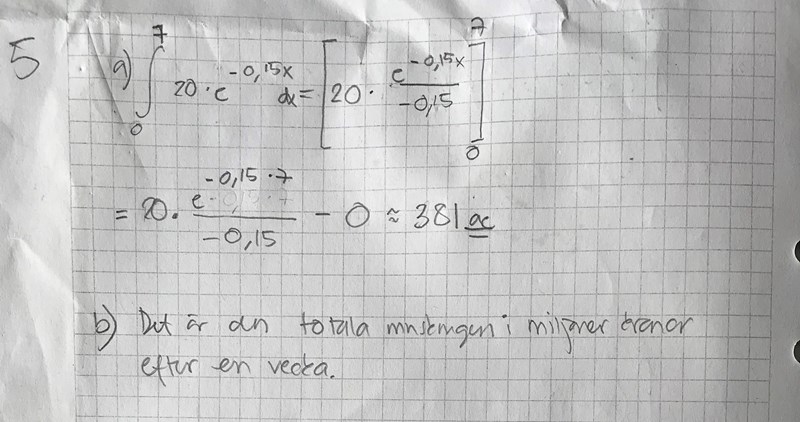 5
a) ∫₀⁷ 20·e^(-0,15x) dx = [20 · e^(-0,15x) / -0,15]₀⁷
= 20 · e^(-0,15·7) / -0,15 - 0 ≈ 381 ae
b) Det är dn totala mnskningen i miljoner kronor
efter en vecka.